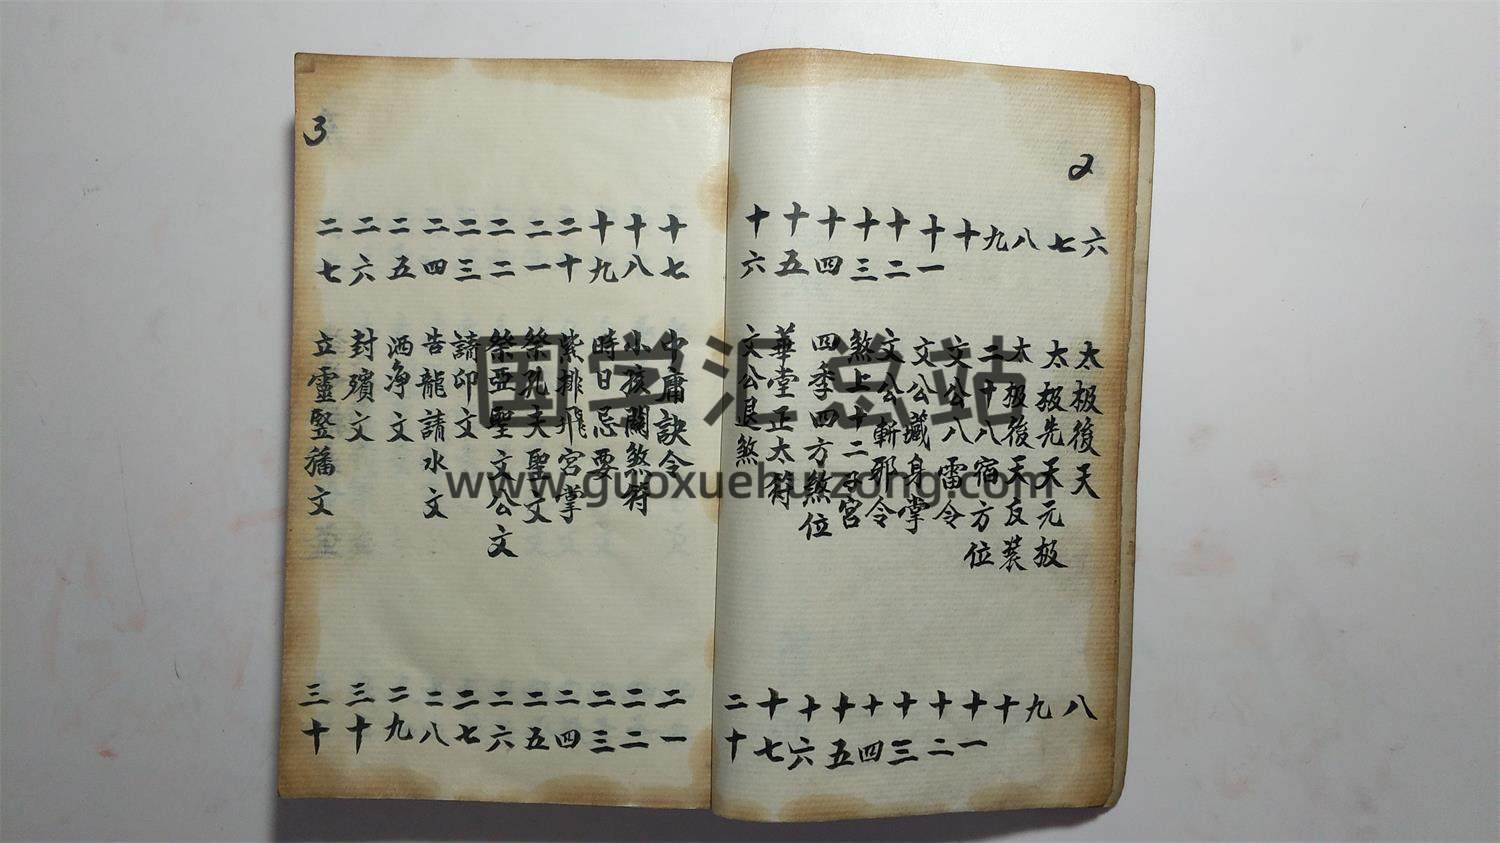 2
六 太极後天 八
七 太极先天元极 九
八 太极後天反装 十
九 二十八宿方位 十一
十 文公八雷令 十二
十一 文公藏身掌 十三
十二 文公斬邪令 十四
十三 煞上十二子宮 十五
十四 四季四方煞位 十六
十五 華堂正太符 十七
十六 文公退煞 二十
3
十七 中庸訣令 二一
十八 小孩關煞符 二二
十九 時日忌要 二三
二十 紫排飛宮掌 二四
二一 祭孔夫聖文 二五
二二 祭亞聖文公文 二六
二三 請卬文 二七
二四 告龍請水文 二八
二五 洒净文 二九
二六 封殯文 三十
二七 立靈豎旛文 三十
国学汇总站
www.guoxuehuizong.com